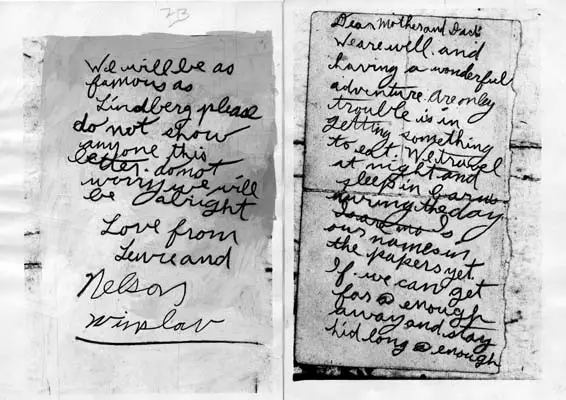 23
We will be as
famous as
Lindberg please
do not show
anyone this
letter. do not
worry we will
be alright
Love from
Lewie and
Nelson
Winslow
Dear Mother and Dad:
We are well and
having a wonderful
adventure. Are only
trouble is in
getting something
to eat. We travel
at night and
sleep in barns
during the day
our names in
the papers yet.
If we can get
far enough
away and stay
hid long enough